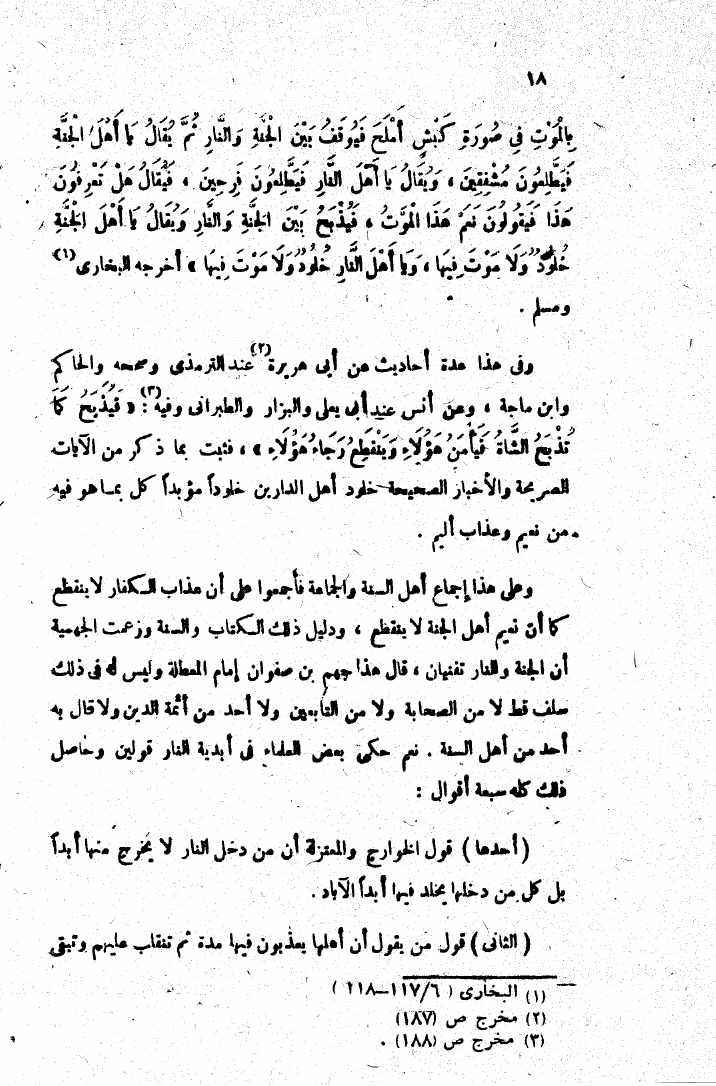 ١٨
بِالْمَوْتِ فِى صُورَةِ كَبْشٍ أَمْلَحَ فَيُوقَفُ بَيْنَ الْجَنَّةِ وَالنَّارِ ثُمَّ يُقَالُ يَا أَهْلَ الْجَنَّةِ
فَيَطَّلِعُونَ مُشْفِقِينَ ، وَيُقَالُ يَا أَهْلَ النَّارِ فَيَطَّلِعُونَ فَرِحِينَ ، فَيُقَالُ هَلْ تَعْرِفُونَ
هَذَا فَيَقُولُونَ نَعَمْ هَذَا الْمَوْتُ ، فَيُذْبَحُ بَيْنَ الْجَنَّةِ وَالنَّارِ وَيُقَالُ يَا أَهْلَ الْجَنَّةِ
خُلُودٌ وَلَا مَوْتَ فِيهَا ، وَيَا أَهْلَ النَّارِ خُلُودٌ وَلَا مَوْتَ فِيهَا » أخرجه البخارى(١)
ومسلم .
وفى هذا عدة أحاديث عن أبى هريرة(٢) عند الترمذى وصححه والحاكم
وابن ماجة ، وعن أنس عند أبى يعلى والبزار والطبرانى وفيه(٣) : « فَيُذْبَحُ كَمَا
تُذْبَحُ الشَّاةُ فَيَأْمَنُ هَؤُلَاءِ وَيَنْقَطِعُ رَجَاءُ هَؤُلَاءِ » ، فثبت بما ذكر من الآيات
الصريحة والأخبار الصحيحة خلود أهل الدارين خلوداً مؤبداً كل بما هو فيه
من نعيم وعذاب أليم .
وعلى هذا إجماع أهل السنة والجماعة فأجمعوا على أن عذاب الكفار لا ينقطع
كما أن نعيم أهل الجنة لا ينقطع ، ودليل ذلك الكتاب والسنة وزعمت الجهمية
أن الجنة والنار تفنيان ، قال هذا جهم بن صفوان إمام المعطلة وليس له فى ذلك
سلف قط لا من الصحابة ولا من التابعين ولا أحد من أئمة الدين ولا قال به
أحد من أهل السنة . نعم حكى بعض العلماء فى أبدية النار قولين وحاصل
ذلك كله سبعة أقوال :
( أحدها ) قول الخوارج والمعتزلة أن من دخل النار لا يخرج منها أبداً
بل كل من دخلها يخلد فيها أبداً الآباد .
( الثانى ) قول من يقول أن أهلها يعذبون فيها مدة ثم تنقلب عليهم وتبقى
(١) البخارى ( ٦/١١٧–١١٨ )
(٢) مخرج ص (١٨٧)
(٣) مخرج ص (١٨٨) .